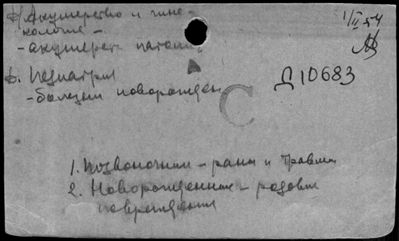 а) Акушерство и гине-
кология -
- акушерск. патол.
1/II 54
в. Педиатрия
- болезни новорожден
Д10683
С
1. Позвоночник - раны и травмы
2. Новорожденные - родовые
повреждения